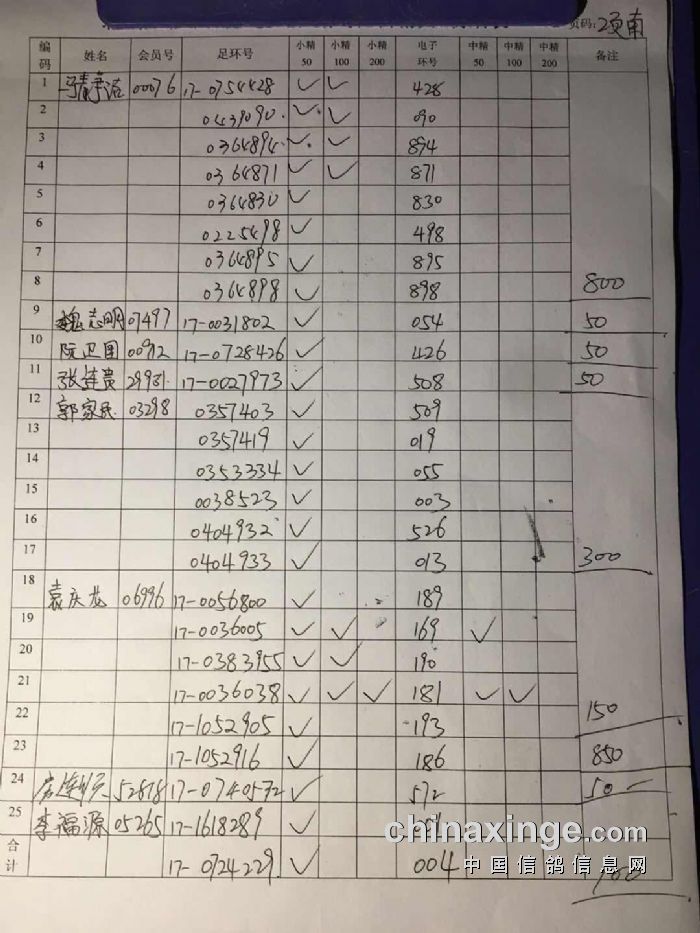 页码: 2项南
编码 姓名 会员号 足环号 小精50 小精100 小精200 电子环号 中精50 中精100 中精200 备注
1 马静洁 00076 17-0754428 ✓ ✓ 428
2 0439090 ✓ ✓ 090
3 0364894 ✓ ✓ 894
4 0364871 ✓ ✓ 871
5 0364830 ✓ 830
6 0225498 ✓ 498
7 0364895 ✓ 895
8 0364898 ✓ 898 800
9 魏志明 07497 17-0031802 ✓ 054 50
10 阮卫国 00972 17-0728426 ✓ 426 50
11 张连贵 29931 17-0027973 ✓ 508 50
12 郭家民 03298 0357403 ✓ 509
13 0357419 ✓ 019
14 0353334 ✓ 055
15 0038523 ✓ 003
16 0404932 ✓ 526
17 0404933 ✓ 013 300
18 袁庆龙 06996 17-0056800 ✓ 189
19 17-0036005 ✓ ✓ 169 ✓
20 17-0383955 ✓ ✓ 190
21 17-0036038 ✓ ✓ ✓ 181 ✓ ✓ 150
22 17-1052905 ✓ 193
23 17-1052916 ✓ 186 850
24 52818 17-0740572 ✓ 572 50
25 李福源 05265 17-1618289 ✓
合计 17-0724229 ✓ 004 100
chinaxinge.com
中国信鸽信息网